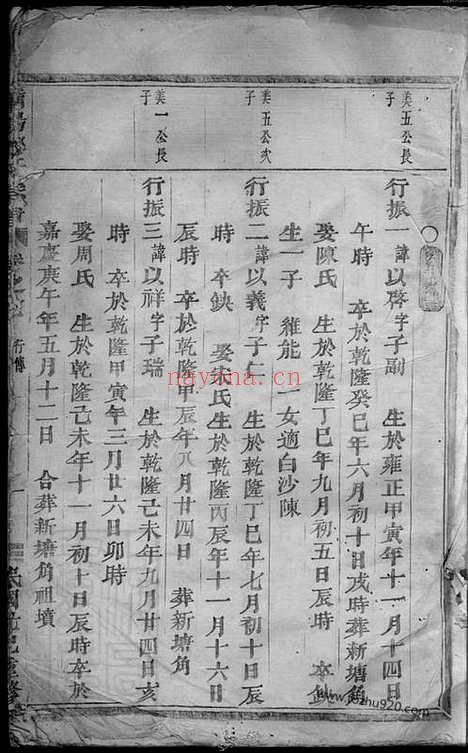 美五公長子
行振一諱以啓字子副 生於雍正甲寅年十一月十四日
午時 卒於乾隆癸巳年六月初十日戌時葬新塘角
娶陳氏 生於乾隆丁巳年九月初五日辰時 卒缺
生一子 維能 二女適白沙陳
美五公次子
行振二諱以義字子仁 生於乾隆丁巳年七月初十日辰
時 卒缺 娶宋氏生於乾隆丙辰年十一月十六日
辰時 卒於乾隆甲辰年八月廿四日 葬新塘角
美一公長子
行振三諱以祥字子瑞 生於乾隆己未年九月廿四日亥
時 卒於乾隆甲寅年三月廿六日卯時
娶周氏 生於乾隆己未年十一月初十日辰時卒於
嘉慶庚午年五月十二日 合葬新塘角祖墳
行傳
nayona.cn